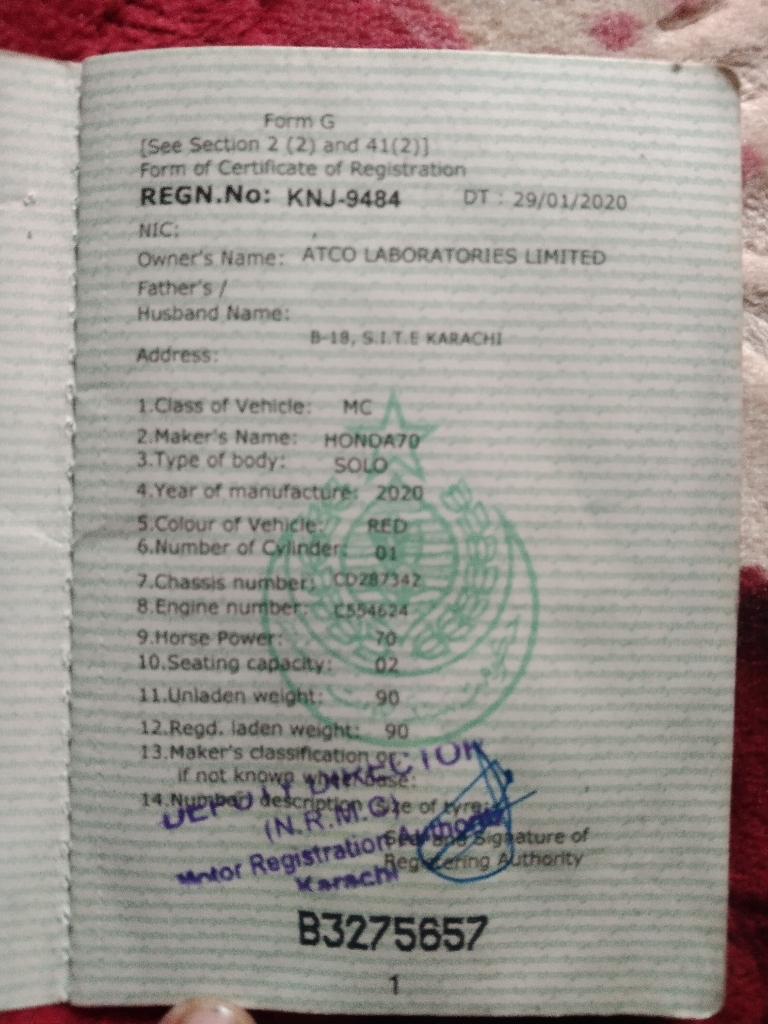 Form G
[See Section 2 (2) and 41(2)]
Form of Certificate of Registration
REGN.No: KNJ-9484 DT : 29/01/2020
NIC:
Owner's Name: ATCO LABORATORIES LIMITED
Father's /
Husband Name:
B-18, S.I.T.E KARACHI
Address:
1.Class of Vehicle: MC
2.Maker's Name: HONDA70
3.Type of body: SOLO
4.Year of manufacture: 2020
5.Colour of Vehicle: RED
6.Number of Cylinder: 01
7.Chassis number: CD287342
8.Engine number: C554624
9.Horse Power: 70
10.Seating capacity: 02
11.Unladen weight: 90
12.Regd. laden weight: 90
13.Maker's classification or
if not known wheel base:
14.Number description size of tyre:
DEPUTY DIRECTOR
(N.R.M.C)
Motor Registration Authority
Karachi
Seal and Signature of
Registering Authority
B3275657
1